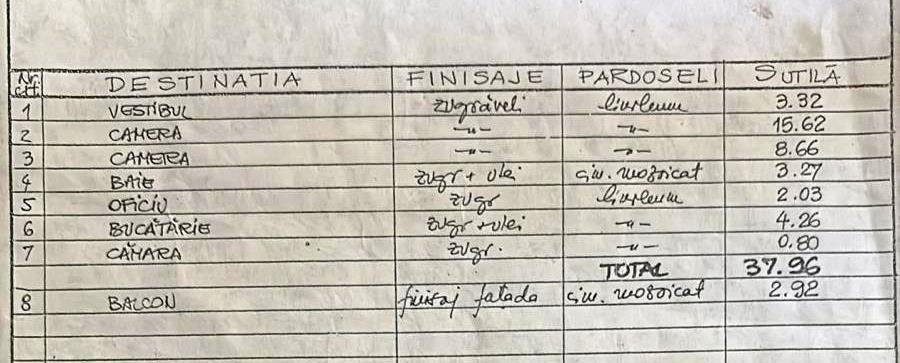 Nr. crt. DESTINATIA FINISAJE PARDOSELI SUTILĂ
1 VESTIBUL zugrăveli linoleum 3.32
2 CAMERA —"— —"— 15.62
3 CAMERA —"— —"— 8.66
4 BAIE zugr + ulei cim. mozaicat 3.27
5 OFICIU zugr linoleum 2.03
6 BUCĂTĂRIE zugr + ulei —"— 4.26
7 CĂMARA zugr. —"— 0.80
TOTAL 37.96
8 BALCON finisaj fatada cim. mozaicat 2.92